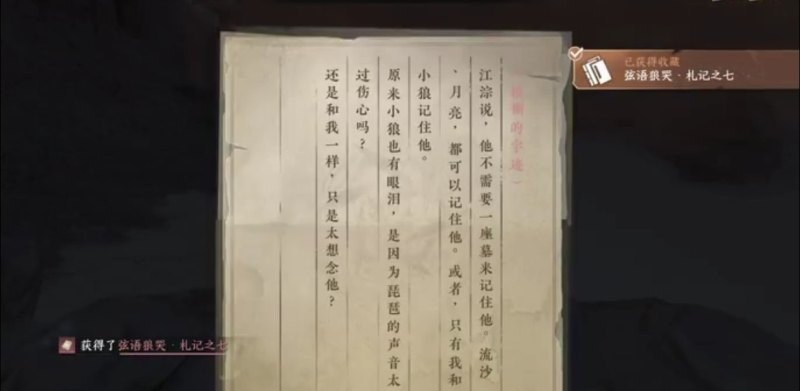 的字迹）
江淙说，他不需要一座墓来记住他。流沙
、月亮，都可以记住他。或者，只有我和
小狼记住他。
原来小狼也有眼泪，是因为琵琶的声音太
过伤心吗？
还是和我一样，只是太想念他？
已获得收藏
弦语狼哭·札记之七
获得了弦语狼哭·札记之七